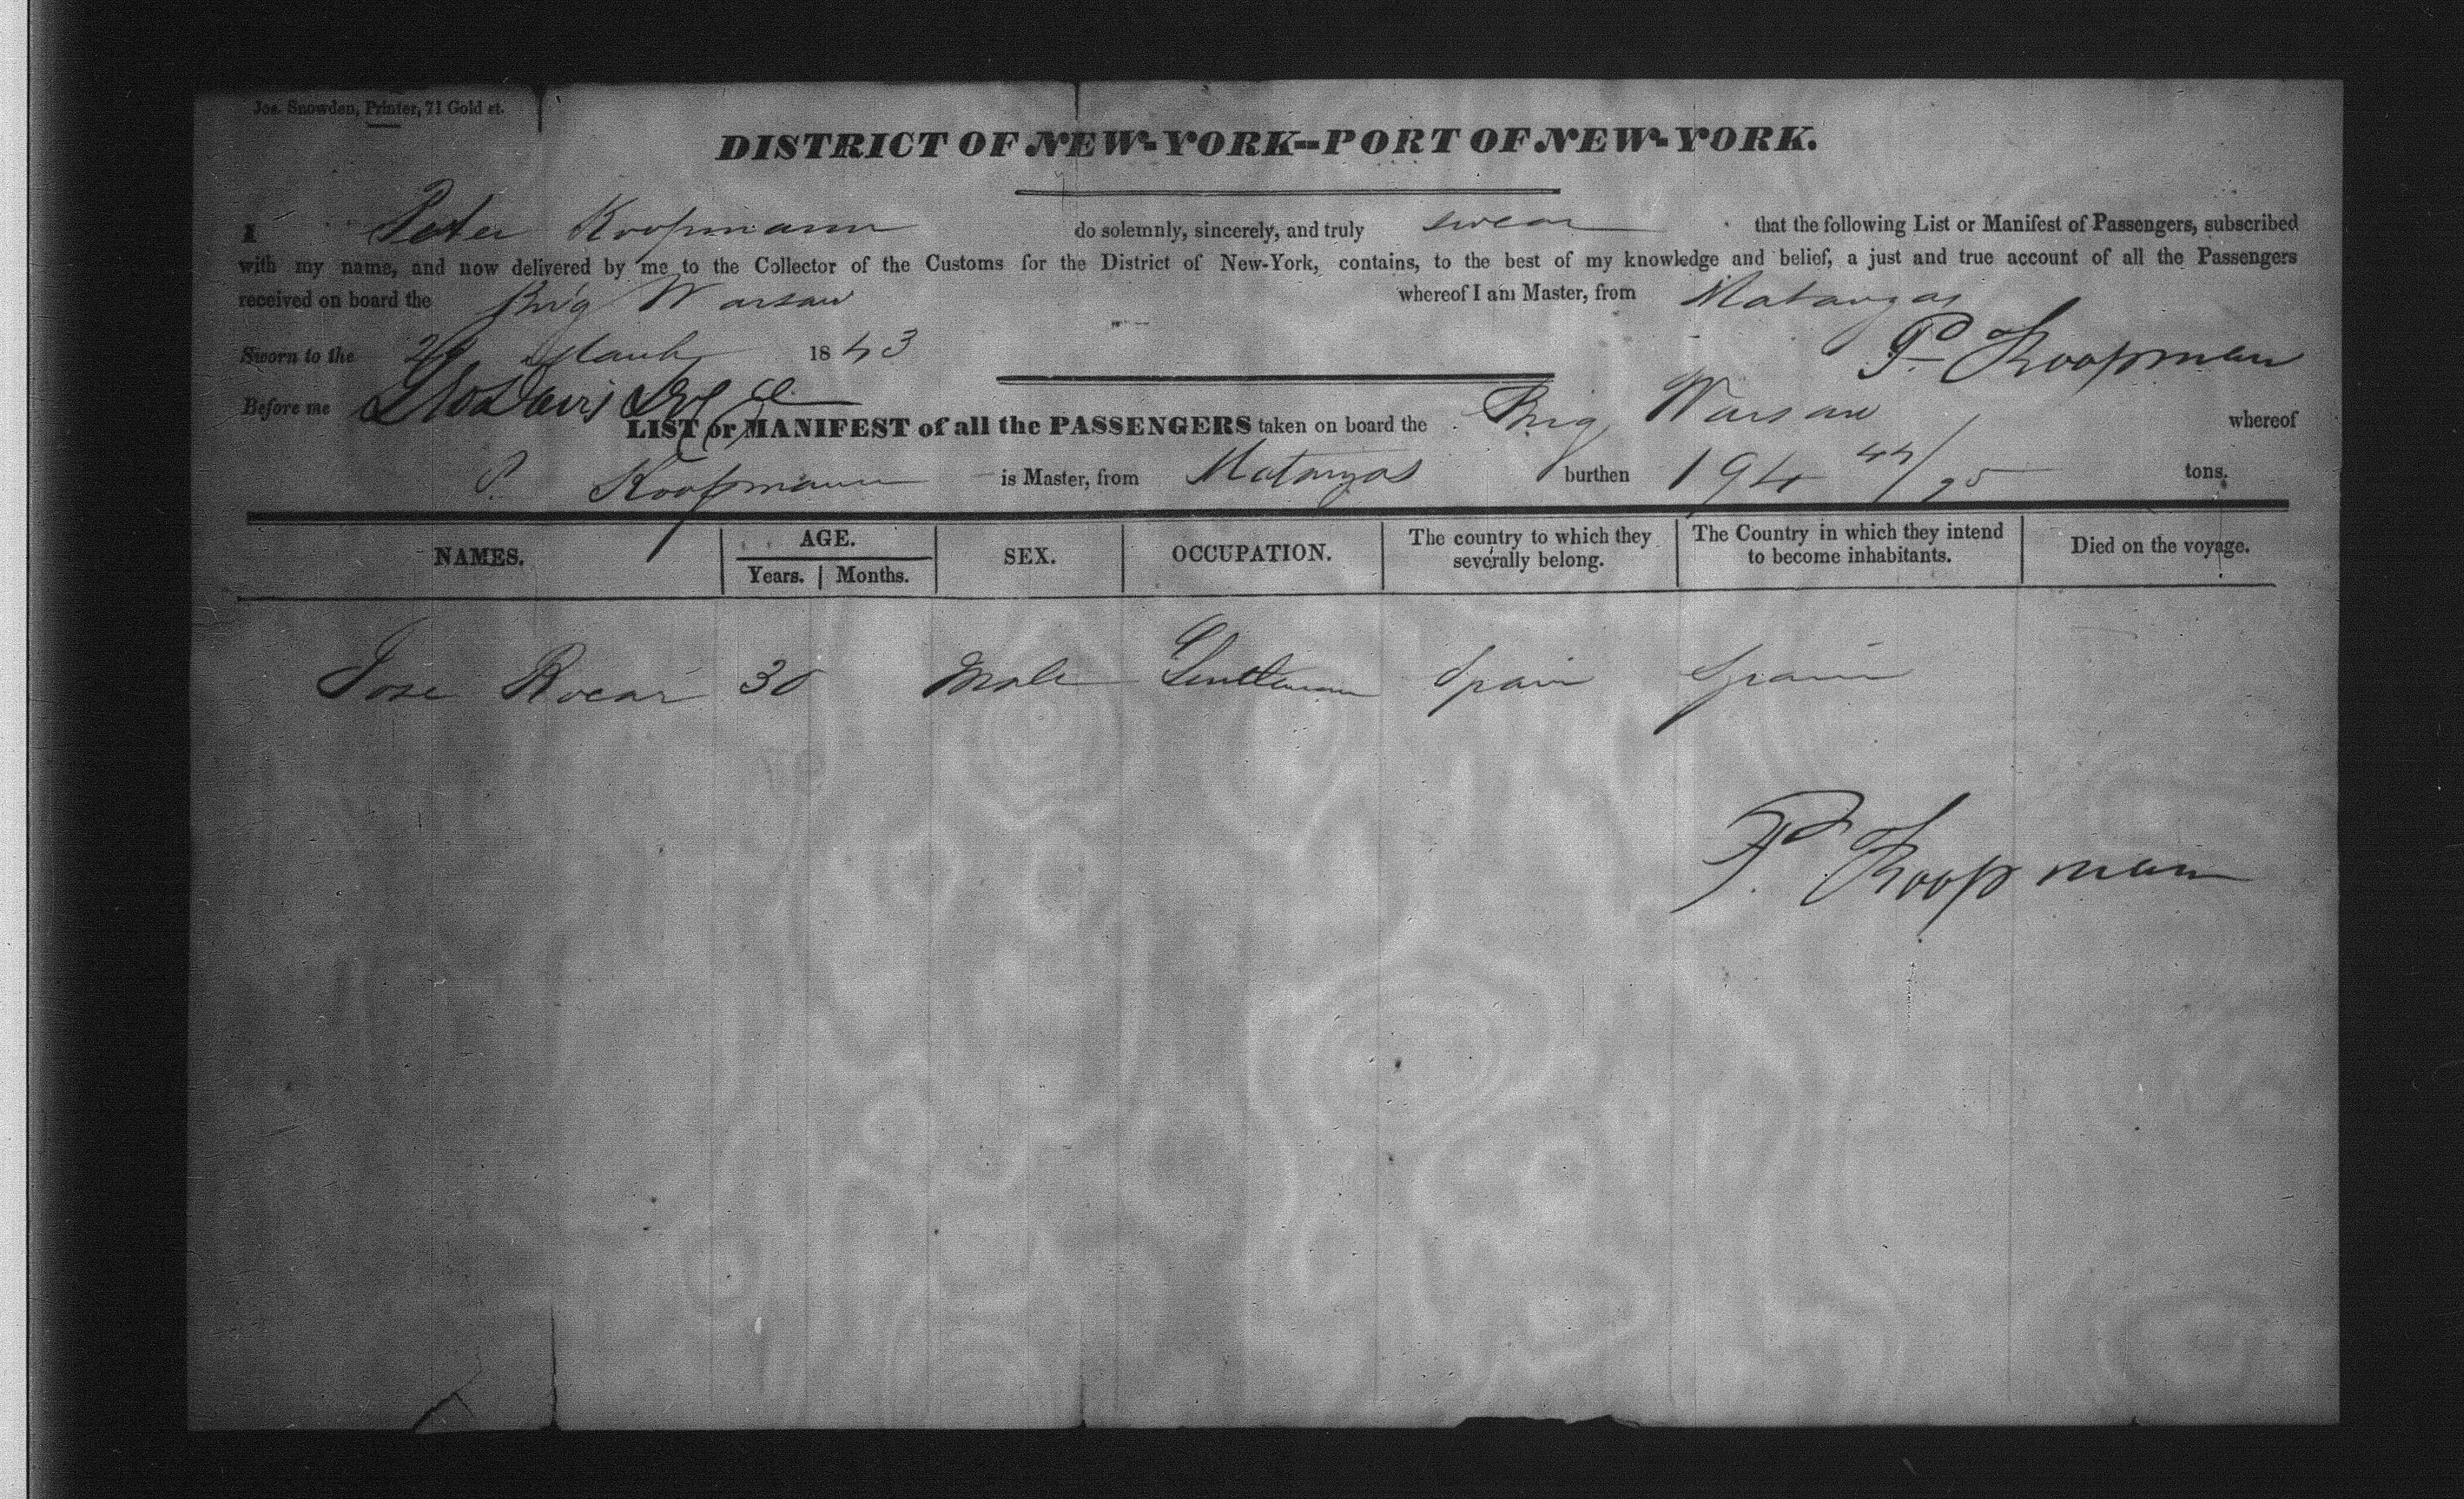 Jos. Snowden, Printer, 71 Gold st.
DISTRICT OF NEW-YORK--PORT OF NEW-YORK.
I Peter Koopmann do solemnly, sincerely, and truly swear that the following List or Manifest of Passengers, subscribed
with my name, and now delivered by me to the Collector of the Customs for the District of New-York, contains, to the best of my knowledge and belief, a just and true account of all the Passengers
received on board the Brig Warsaw whereof I am Master, from Matanzas
Sworn to the March 1843 P. Koopman
Before me
LIST or MANIFEST of all the PASSENGERS taken on board the Brig Warsaw whereof
P. Koopmann is Master, from Matanzas burthen 194 44/95 tons.
NAMES. AGE. Years. Months. SEX. OCCUPATION. The country to which they severally belong. The Country in which they intend to become inhabitants. Died on the voyage.
Jose 30 Male Gentleman Spain Spain
P. Koopman